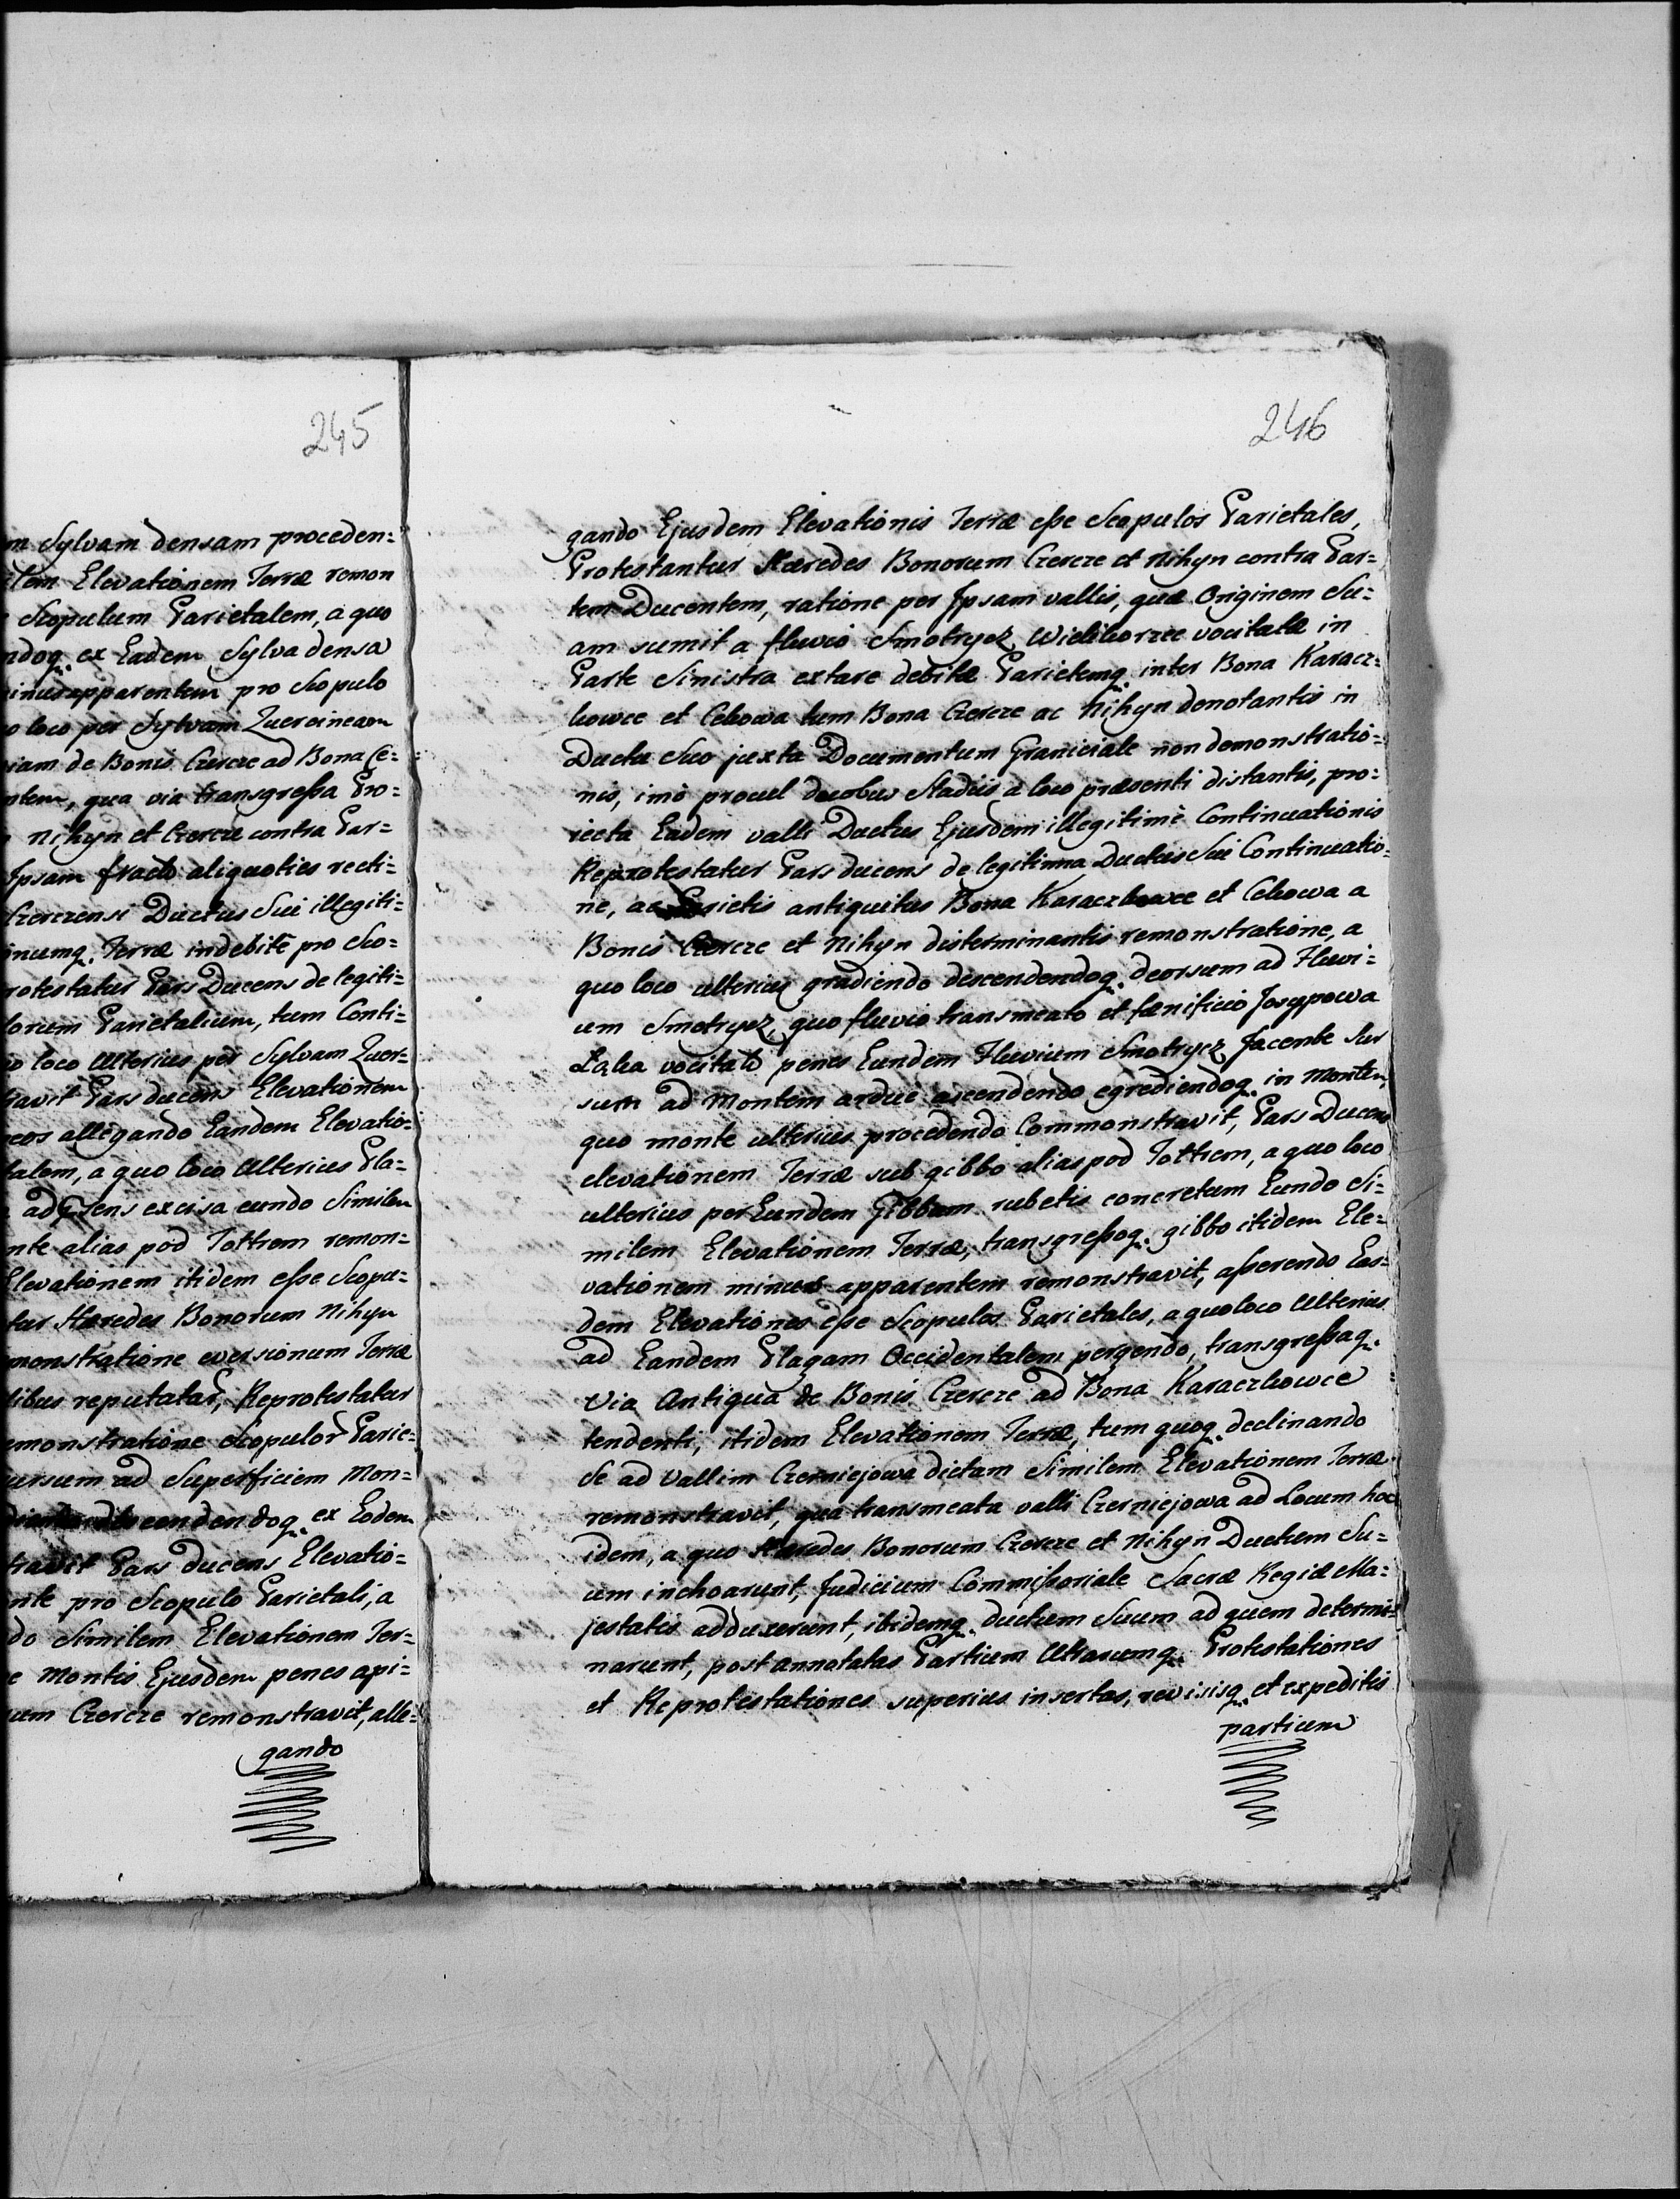 245
m Sylvam densam proceden=
ilem Elevationem Terræ remon
Scopulum Parietalem, a quo
ndoq. ex Eadem Sylva densa
minus apparentem pro Scopulo
o loco per Sylvam Quercineam
iam de Bonis Czercze ad Bona Ce=
ntem, qua via transgreſsa Pro=
Nihyn et Czercze contra Par=
Ipsam fracto aliquoties recti=
Czerczensi Ductus Sui illegiti=
inumq. Terræ indebite pro Sco=
rotestatur Pars Ducens de legiti=
lorum Parietalium, tum Conti=
o loco ulterius per Sylvam Quer=
travit Pars ducens Elevationem
eos allegando Eandem Elevatio=
talem, a quo loco ulterius Pla=
ad Gens excisa eundo Similem
nte alias pod Tottrem remon=
Elevationem itidem eſse Scopu=
tur Hæredes Bonorum Nihyn
monstratione eversionum Terræ
libus reputatar, Reprotestatur
emonstratione Scopulor Parie=
ursum ad Superficiem Mon=
cendendoq. ex Eodem
travit Pars ducens Elevatio=
nte pro Scopulo Parietali, a
do Similem Elevationem Ter=
e Montis Ejusdem penes api=
um Czercze remonstravit, alle=
gando
246
gando Ejusdem Elevationis Terræ eſse Scopulos Parietales,
Protestantur Hæredes Bonorum Czercze et Nihyn contra Par=
tem Ducentem, ratione per Ipsam vallis, quæ Originem Su=
am sumit a fluvio Smotrycz, Wielihorzec vocitatæ in
Parte Sinistra extare debitæ Parietemq. inter Bona Karacz=
kowce et Cekowa tum Bona Czercze ac Nihyn denotantis in
Ductu Suo juxta Documentum Graniciale non demonstratio=
nis, imò procul duobus Stadiis a loco præsenti distantis, pro=
iecta Eadem valli Ductus Ejusdem illegitimè Continuationis
Reprotestatur Pars ducens de legitima Ductus Sui Continuatio=
ne, ac Parietis antiquitus Bona Karaczkowce et Cekowa a
Bonis Czercze et Nihyn disterminantis remonstratione, a
quo loco ulterius gradiendo descendendoq. deorsum ad Fluvi=
um Smotrycz, quo fluvio transmeato et fænificio Josypowa
Łąka vocitato penes Eundem Fluvium Smotrycz Jacente Sur
sum ad Montem ardue ascendendo egrediendoq. in Montem,
quo monte ulterius procedendo Commonstravit, Pars Ducens
elevationem Terræ sub gibbo alias pod Tottrem, a quo loco
ulterius per Eundem Gibbum rubetis concretum Eundo Si=
milem Elevationem Terræ, transgreſsoq. gibbo itidem Ele=
vationem minus apparentem remonstravit, aſserendo Eas=
dem Elevationes eſse Scopulos Parietales, a quo loco ulterius
ad Eandem Plagam Occidentalem pergendo, transgreſsaq.
Via Antiqua de Bonis Czercze ad Bona Karaczkowce
tendenti, itidem Elevationem Terræ, tum quoq. declinando
Se ad Vallim Czerniejowa dictam Similem Elevationem Terræ
remonstravit, qua transmeata valli Czerniejowa ad Locum hoc
idem, a quo Hæredes Bonorum Czercze et Nihyn Ductum Su=
um inchoarunt, Judicium Commiſsoriale Sacræ Regiæ Ma=
jestatis adduxerunt, ibidemq. ductum Suum ad quem determi=
narunt, post annotatas Partium Utrarumq. Protestationes
et Reprotestationes superius insertas, revisisq. et expeditis
partium